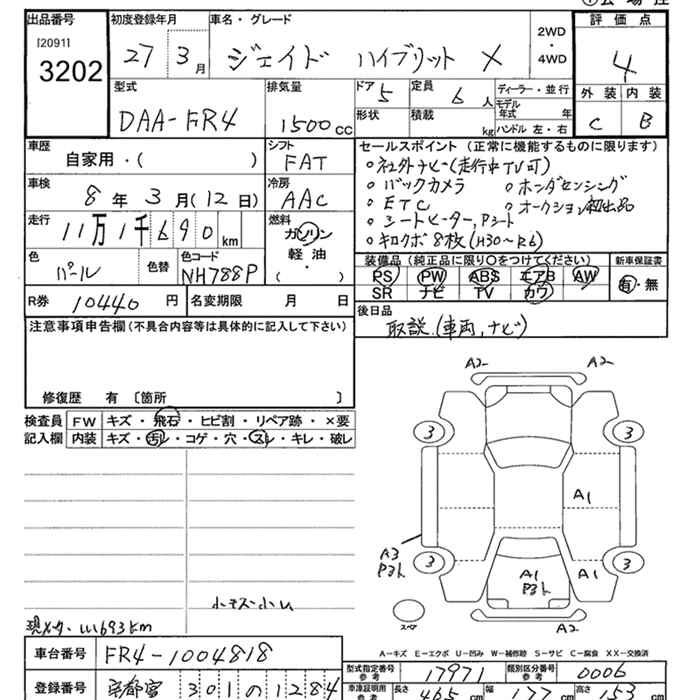 出品番号 初度登録年月 車名・グレード 2WD・4WD 評価点
I20911 3202 27 3月 ジェイド ハイブリット X 4
外装 内装
C B
型式 排気量 ドア 5 定員 6人 ディーラー・並行
DAA-FR4 1500cc 形状 積載 kg モデル年式 年
ハンドル 左・右
車歴 シフト セールスポイント (正常に機能するものに限ります)
自家用・( ) FAT ○社外ナビ(走行中TV可)
車検 冷房 ○バックカメラ ○ホンダセンシング
8年3月(12日) AAC ○ETC ○オークション初出品
走行 燃料 ○シートヒーター,Pシート
11万1千690km ガソリン・軽油・( ) ○キロクボ8枚(H30~R6)
色 色替 色コード 装備品 (純正品に限り○をつけてください) 新車保証書
パール NH788P PS PW ABS エアB AW 有・無
SR ナビ TV カワ
R券 10440円 名変期限 月 日 後日品
取説(車両,ナビ)
注意事項申告欄(不具合内容等は具体的に記入して下さい)
修復歴 有 〔箇所 〕
検査員 FW キズ・飛石・ヒビ割・リペア跡・×要
記入欄 内装 キズ・汚レ・コゲ・穴・スレ・キレ・破レ
A2 A2
3 3
A1
A3 P3ト
3 3
A1 P3ト A1
スペア A2
小キズ小凹
現メーター 111693km
A-キズ E-エクボ U-凹み W-補修跡 S-サビ C-腐食 XX-交換済
車台番号 FR4-1004818 型式指定番号 参考 17971 類別区分番号 参考 0006
登録番号 宇都宮 301 の 1284 車庫証明用 参考 長さ 465cm 幅 177cm 高さ 153cm